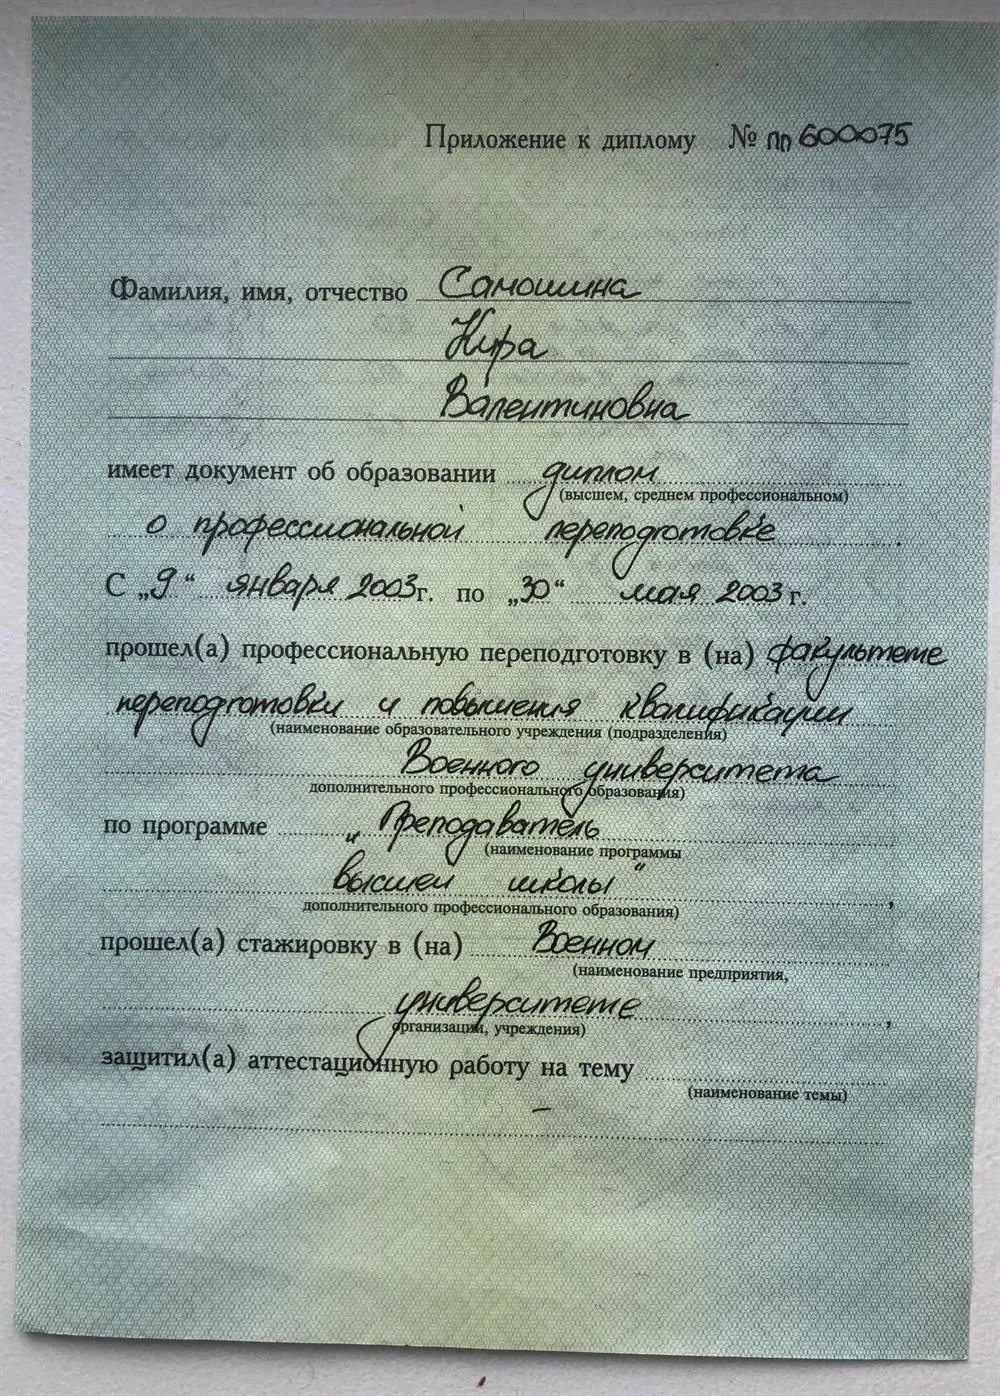 Приложение к диплому № ПП 600075
Фамилия, имя, отчество Самошина
Кира
Валентиновна
имеет документ об образовании диплом
(высшем, среднем профессиональном)
о профессиональной переподготовке.
С „9“ января 2003г. по „30“ мая 2003 г.
прошел(а) профессиональную переподготовку в (на) факультете
переподготовки и повышения квалификации
(наименование образовательного учреждения (подразделения)
Военного университета
дополнительного профессионального образования)
по программе „Преподаватель
(наименование программы
высшей школы“,
дополнительного профессионального образования)
прошел(а) стажировку в (на) Военном
(наименование предприятия,
университете,
организации, учреждения)
защитил(а) аттестационную работу на тему
(наименование темы)
–